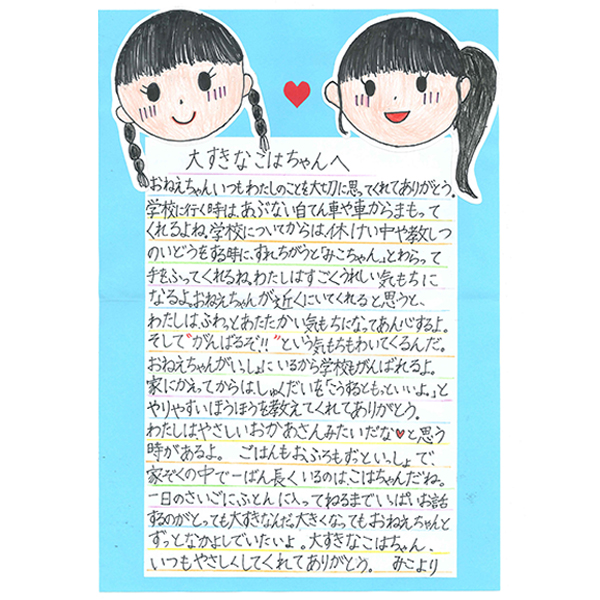 大すきなこはちゃんへ
おねえちゃんいつもわたしのことを大切に思ってくれてありがとう。
学校に行く時は、あぶない自てん車や車からまもって
くれるよね。学校についてからは、休けい中や教しつ
のいどうをする時に、すれちがうと「みこちゃん」とわらって
手をふってくれるね。わたしはすごくうれしい気もちに
なるよ。おねえちゃんが近くにいてくれると思うと、
わたしは、ふわっとあたたかい気もちになってあん心するよ。
そして“がんばるぞ!!”という気もちもわいてくるんだ。
おねえちゃんがいっしょにいるから学校もがんばれるよ。
家にかえってからは、しゅくだいを「こうするともっといいよ。」と
やりやすいほうほうを教えてくれてありがとう。
わたしはやさしいおかあさんみたいだな♥と思う
時があるよ。 ごはんもおふろもずっといっしょで、
家ぞくの中で一ばん長くいるのは、こはちゃんだね。
一日のさいごにふとんに入ってねるまでいっぱいお話
するのがとっても大すきなんだ。大きくなってもおねえちゃんと
ずっとなかよしでいたいよ。大すきなこはちゃん、
いつもやさしくしてくれてありがとう。 みこより